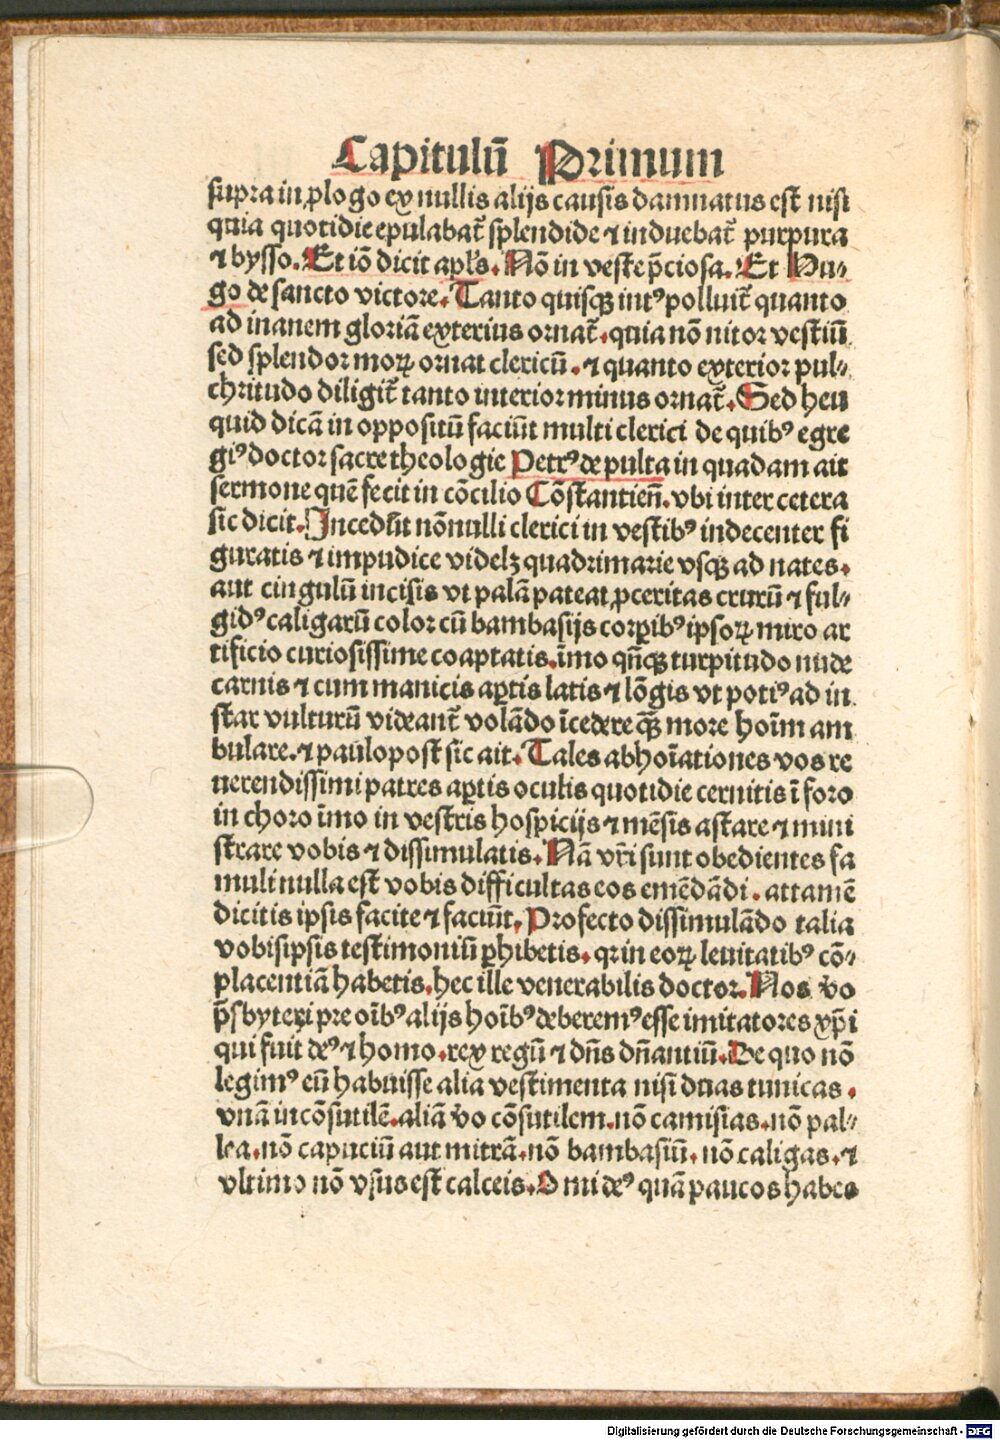 Capitulū Primum
supra in ꝓlogo ex nullis alijs causis damnatus est nisi
quia quotidie epulabat̄ splendide ⁊ induebat̄ purpura
⁊ bysso. Et iō dicit apl̄s. Nō in veste p̄ciosa. Et Hu⸗
go de sancto victore. Tanto quisqꝫ intꝰ polluit̄ quanto
ad inanem gloriā exterius ornat̄. quia nō nitor vestiū
sed splendor moꝝ ornat clericū. ⁊ quanto exterior pul⸗
chritudo diligit̄ tanto interior minus ornat̄. Sed heu
quid dicā in oppositū faciūt multi clerici de quibꝰ egre
giꝰ doctor sacre theologie Petrꝰ de pulta in quadam ait
sermone quē fecit in cōcilio Cōstantien̄. vbi inter cetera
sic dicit. Incedūt nōnulli clerici in vestibꝰ indecenter fi
guratis ⁊ impudice videlꝫ quadrimarie vsqꝫ ad nates.
aut cingulū incisis vt palā pateat ꝓceritas crurū ⁊ ful⸗
gidꝰ caligarū color cū bambasijs corꝑibꝰ ipsoꝝ miro ar
tificio curiosissime coaptatis. īmo qn̄qꝫ turpitudo nude
carnis ⁊ cum manicis aꝑtis latis ⁊ lōgis vt potiꝰ ad in
star vulturū videant̄ volādo īcedere qꝫ̄ more hoīm am
bulare. ⁊ paulopost sic ait. Tales abhoīationes vos re
uerendissimi patres aꝑtis oculis quotidie cernitis ī foro
in choro īmo in vestris hospicijs ⁊ mēsis astare ⁊ mini
strare vobis ⁊ dissimulatis. Nā vr̄i sunt obedientes fa
muli nulla est vobis difficultas eos emēdādi. attamē
dicitis ipsis facite ⁊ faciūt. Profecto dissimulādo talia
vobisipsis testimoniū ꝑhibetis. qꝛ in eoꝝ leuitatibꝰ cō⸗
placentiā habetis. hec ille venerabilis doctor. Nos v̄o
p̄sbyteri pre oīb9 alijs hoībꝰ deberemꝰ esse imitatores xp̄i
qui fuit deꝰ ⁊ homo. rex regū ⁊ dn̄s dn̄antiū. De quo nō
legimꝰ eū habuisse alia vestimenta nisi duas tunicas.
vnā incōsutilē. aliā v̄o cōsutilem. nō camisias. nō pal⸗
lea. nō capuciū aut mitrā. nō bambasiū. nō caligas. ⁊
vltimo nō vsus est calceis. O mi deꝰ quā paucos habes
Digitalisierung gefördert durch die Deutsche Forschungsgemeinschaft - DFG